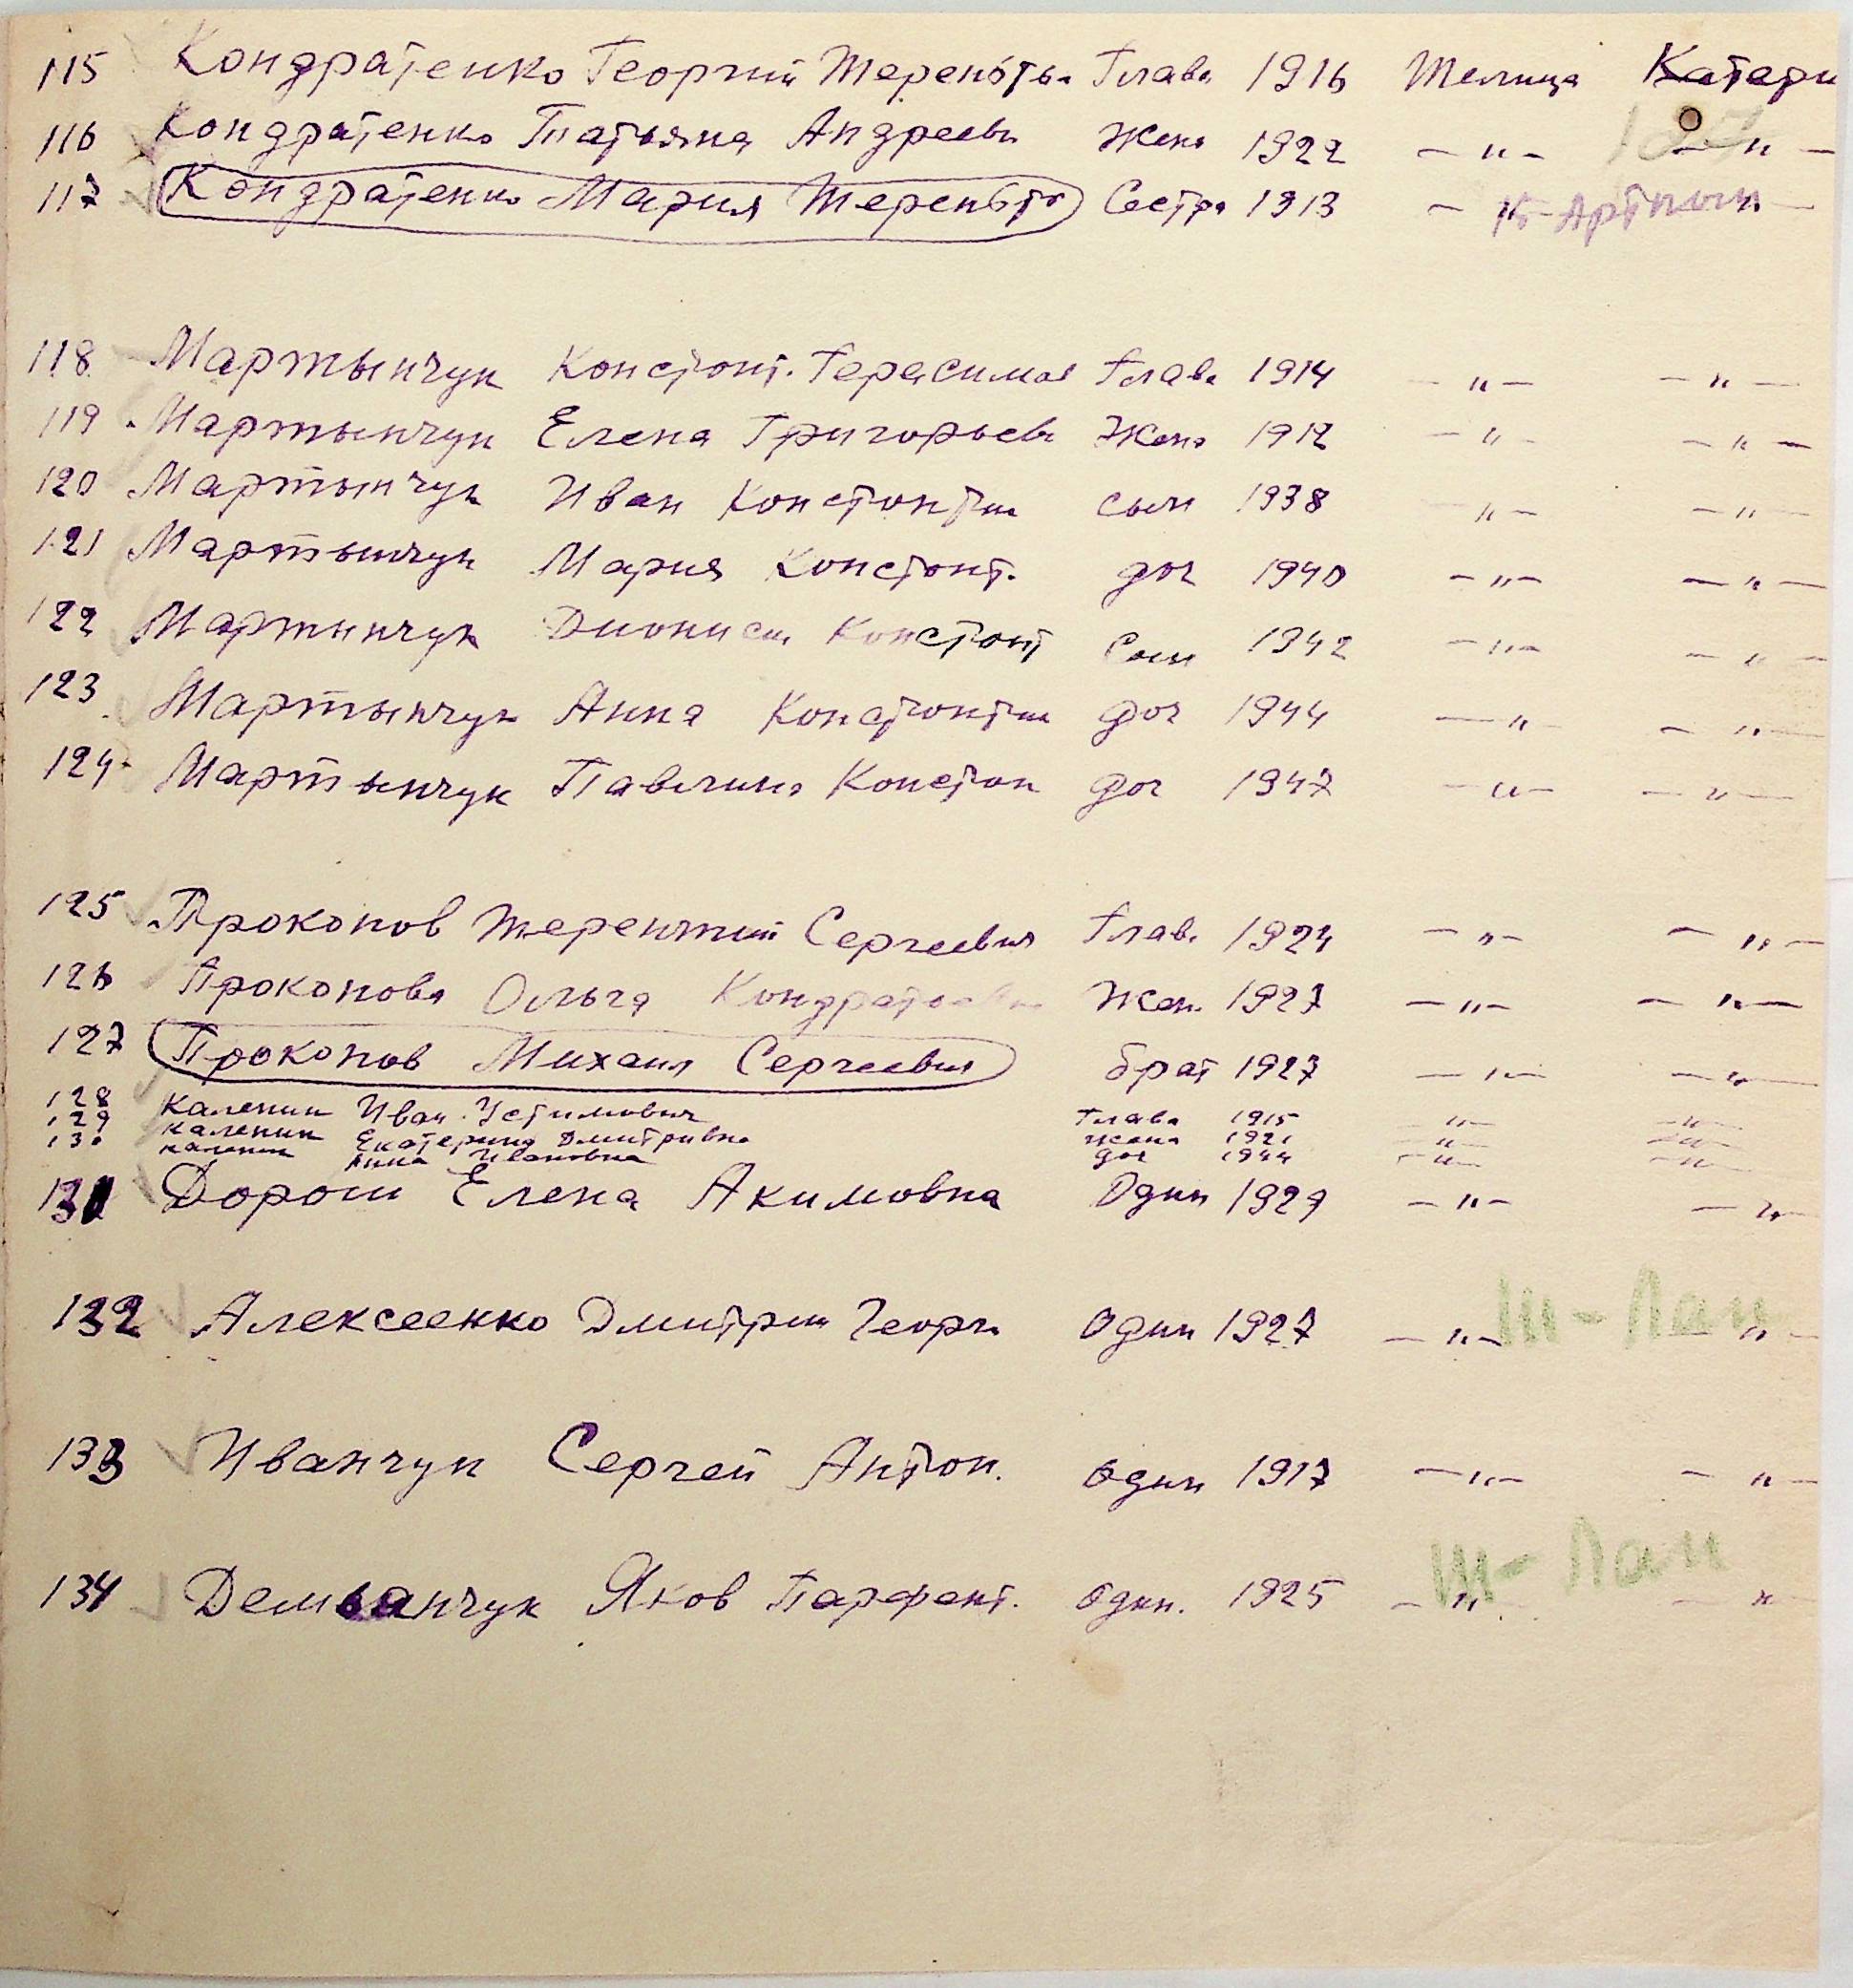 115 Кондратенко Георгий Теренть. Глава 1916 Телица Катери
116 Кондратенко Татьяна Андреевн Жена 1922 — " — — " —
117 Кондратенко Мария Теренть Сестра 1913 — " — — " —
118 Мартынчук Констонт. Герасимов Глава 1914 — " — — " —
119 Мартынчук Елена Григорьев Жена 1912 — " — — " —
120 Мартынчук Иван Констонтин сын 1938 — " — — " —
121 Мартынчук Мария Констонт. доч 1940 — " — — " —
122 Мартынчук Диониси Констонт Сын 1942 — " — — " —
123 Мартынчук Анна Констонтин доч 1944 — " — — " —
124 Мартынчук Павлина Констон доч 1947 — " — — " —
125 Прокопов Терентий Сергеевич Глав. 1924 — " — — " —
126 Прокопова Ольга Кондратоевн Жен. 1927 — " — — " —
127 Прокопов Михаил Сергеевич брат 1927 — " — — " —
128 Каленин Иван Устимович Глава 1915 — " — — " —
129 Каленин Екатерина Дмитривна жена 1921 — " — — " —
130 каленин Анна Ивановна доч 1944 — " — — " —
131 Дорош Елена Акимовна Один 1927 — " — — " —
132 Алексеенко Дмитрий Георги Один 1927 — " — Ш-Лаи — " —
133 Иванчук Сергей Антон. один 1917 — " — — " —
134 Демьанчук Яков Парфент. один. 1925 — " — Ш-Лаи — " —